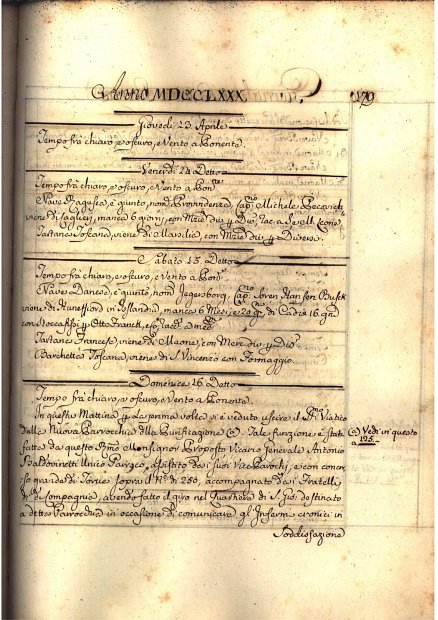 Anno MDCCLXXX. 179
Giovedì 23 Aprile
Tempo frà chiaro, e oscuro, e Vento a Ponente.
Venerdì 24 Detto
Tempo frà chiaro, e oscuro, e Vento a Pon.te
Nave Ragusea, è giunto, nom. Provvidenza, Cap.no Michele
viene di manca 6 giorni, con Mzie div. p Div.
Tartana Toscana, viene di Marsilia, con Mzie div. p Diversi.
Sabato 25 Detto
Tempo frà chiaro, e oscuro, e Vento a Pon.te
Nave Danese, è giunto, nom. Jegersborg, Cap.no Soren Hansen Busck
viene di in Islandia, manca 6 Mesi, e 20 g.ni di Cadice 16 g.ni
con Stoccafissi p Otto Franck,
Tartana Francese, viene di Maone, con Mer. div. p Div.
Barchetta Toscana, viene di S. Vincenzo con Formaggio.
Domenica 26 Detto
Tempo frà chiaro, e oscuro, e Vento a Ponente.
In questa Mattina p la prima volta si è veduto uscire il S.mo Viatico
dalla Nuova Parrocchia della Purificazione (a) Tale funzione è stata
fatta da questo R.mo Monsignor Proposto Vicario Generale Antonio
Baldovinetti Unico Parroco, assistito da suoi Vice Parochi, e con concor-
so grande di Torcie sopra il N.o di 250, accompagnato dai Fratelli
di d.a Compagnia, avendo fatto il giro nel Quartiere di S. Gio: destinato
a detta Parrocchia in occasione di comunicare gl' Infermi cronici in
Soddisfazione
(a) Vedi in questo
a 125.